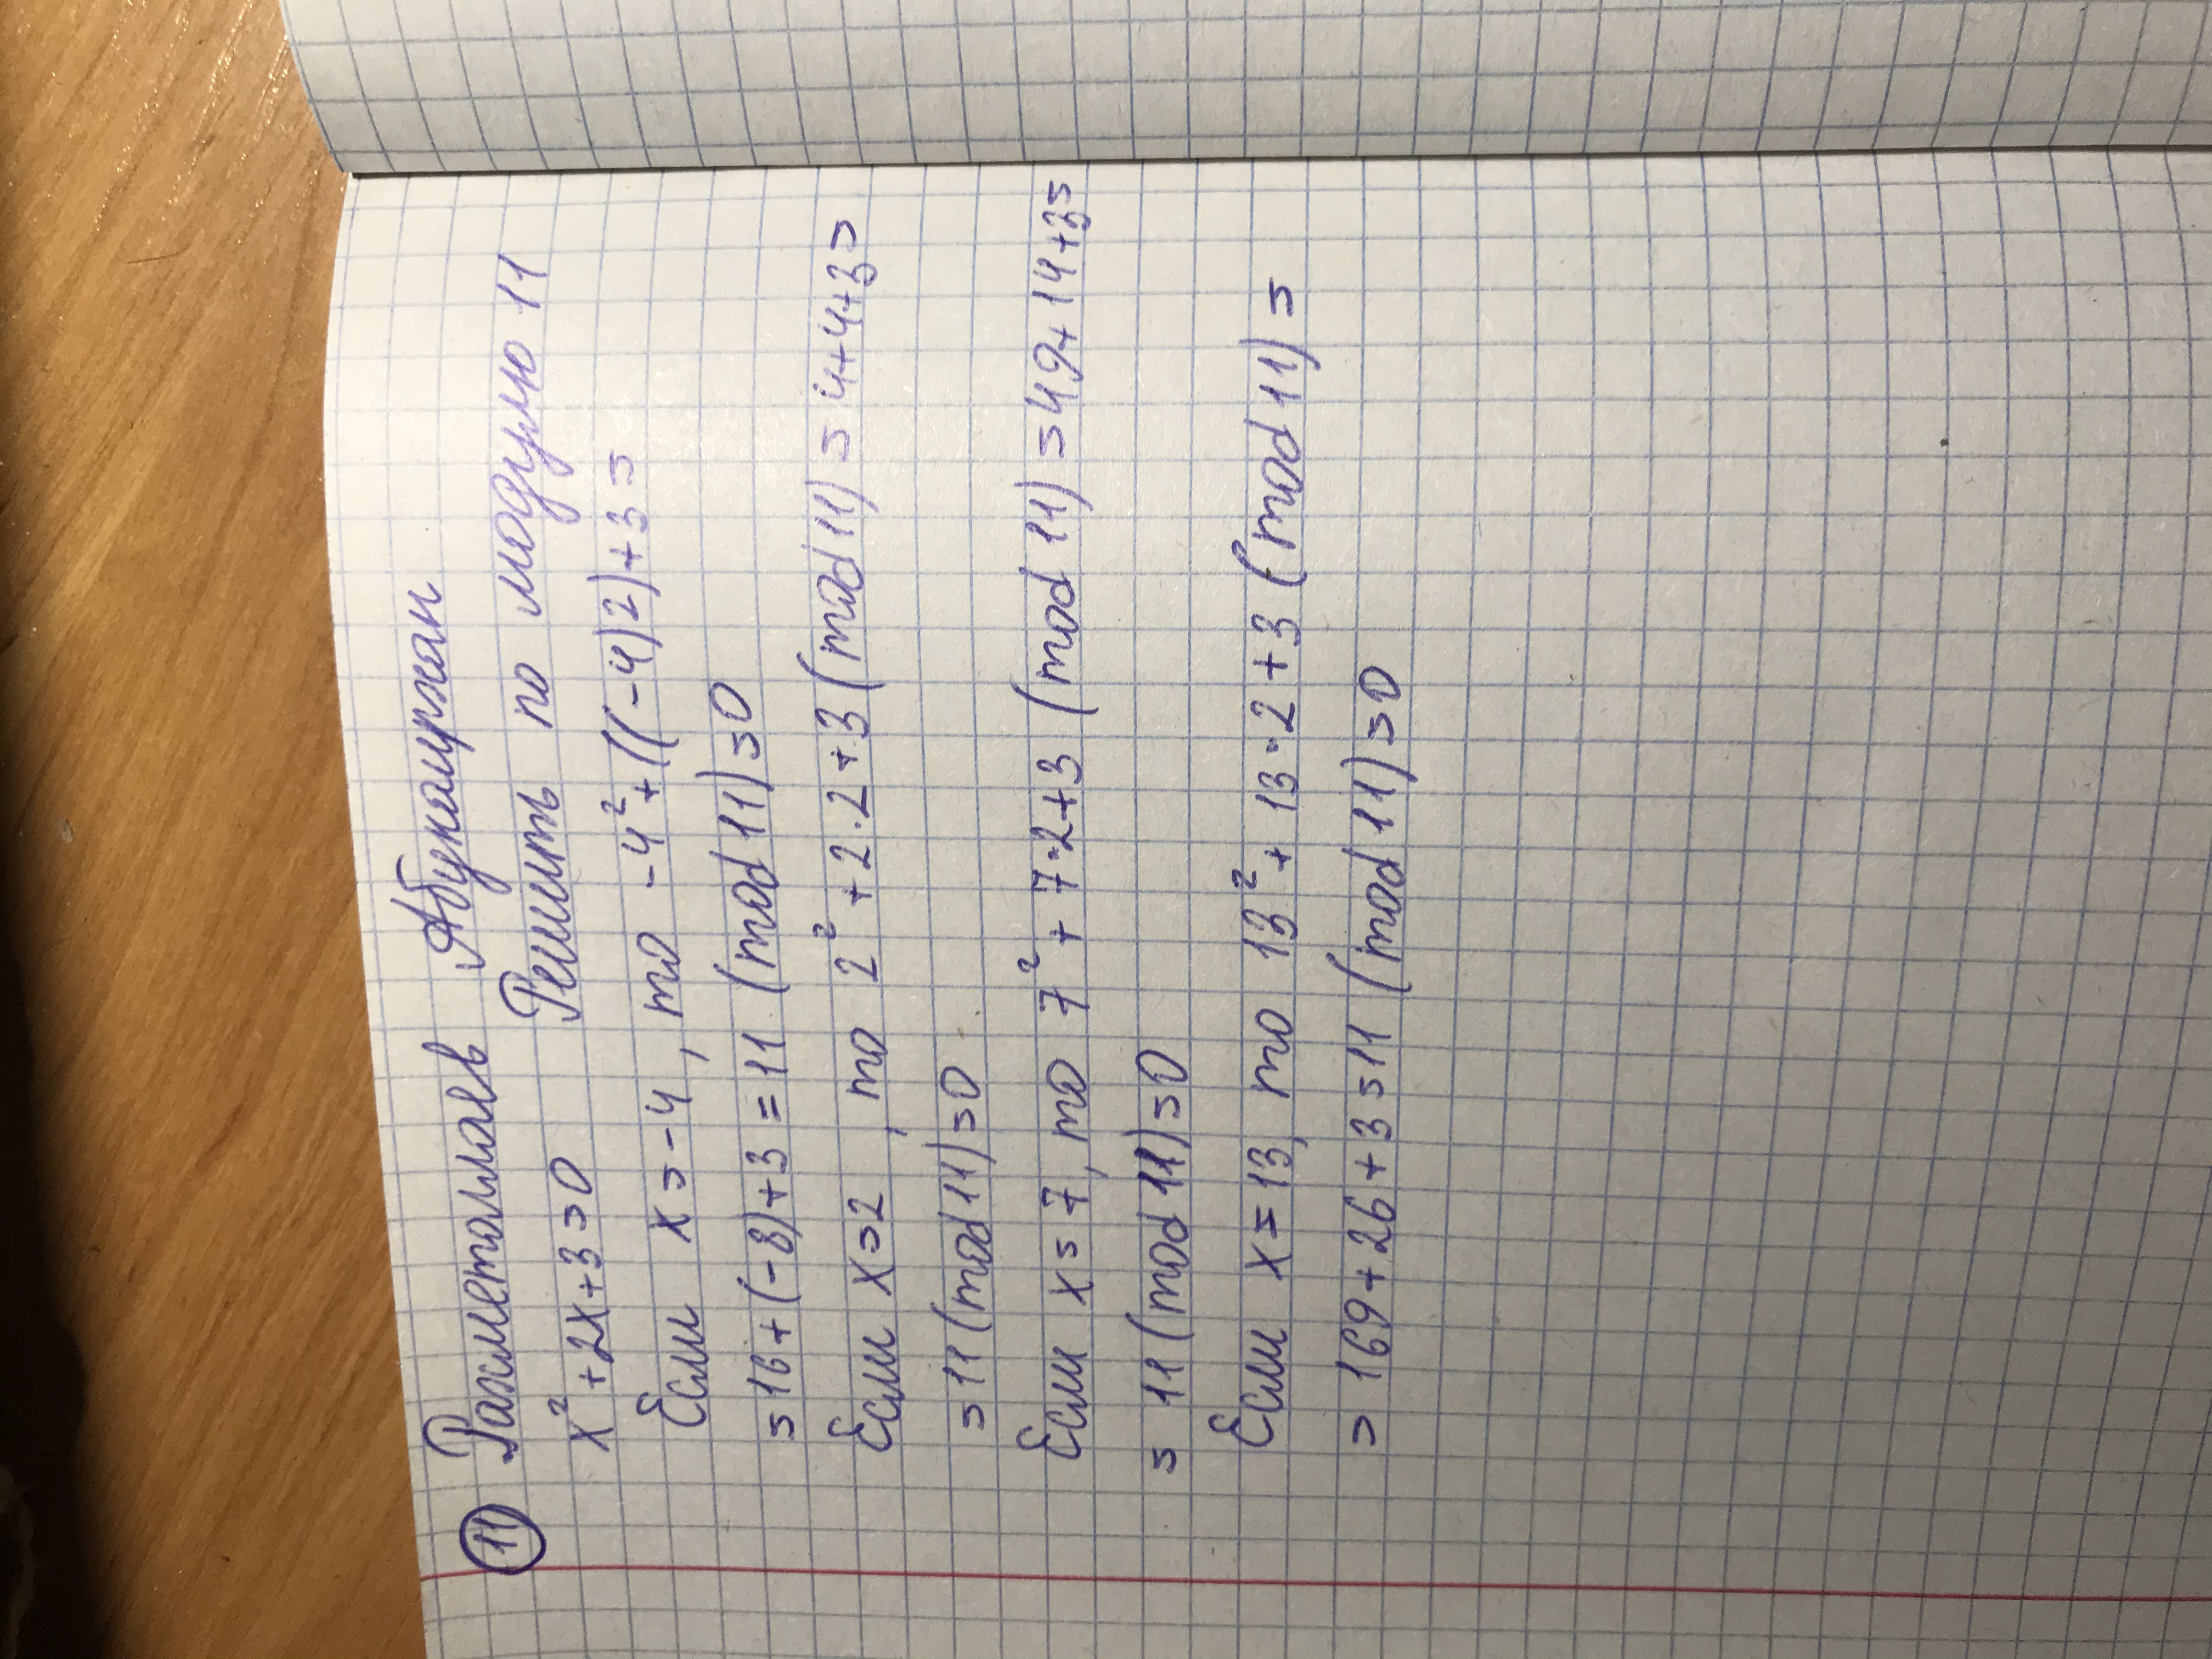 11 Рахметоллаев Абукаирхан
x² + 2x + 3 = 0 Решить по модулю 11
Если x = -4, то -4² + ((-4)2) + 3 =
= 16 + (-8) + 3 = 11 (mod 11) = 0
Если x = 2, то 2² + 2·2 + 3 (mod 11) = 4+4+3 =
= 11 (mod 11) = 0
Если x = 7, то 7² + 7·2 + 3 (mod 11) = 49 + 14 + 3 =
= 11 (mod 11) = 0
Если x = 13, то 13² + 13·2 + 3 (mod 11) =
= 169 + 26 + 3 = 11 (mod 11) = 0